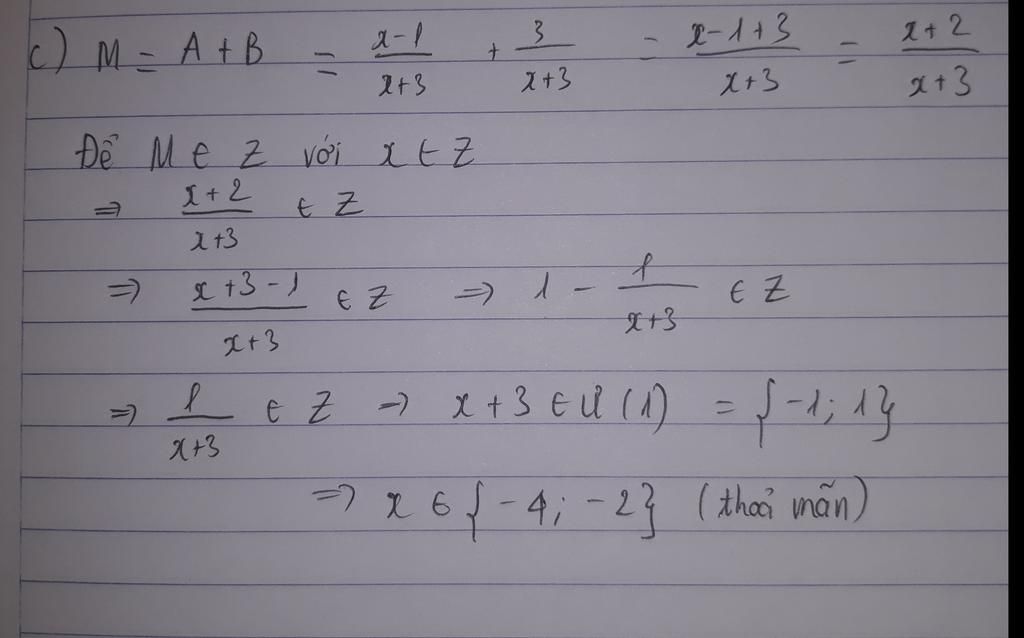 c) M = A + B = \frac{x-1}{x+3} + \frac{3}{x+3} = \frac{x-1+3}{x+3} = \frac{x+2}{x+3}
Để M ∈ Z với x ∈ Z
⇒ \frac{x+2}{x+3} ∈ Z
⇒ \frac{x+3-1}{x+3} ∈ Z ⇒ 1 - \frac{1}{x+3} ∈ Z
⇒ \frac{1}{x+3} ∈ Z ⇒ x+3 ∈ Ư(1) = {-1; 1}
⇒ x ∈ {-4; -2} (thoả mãn)